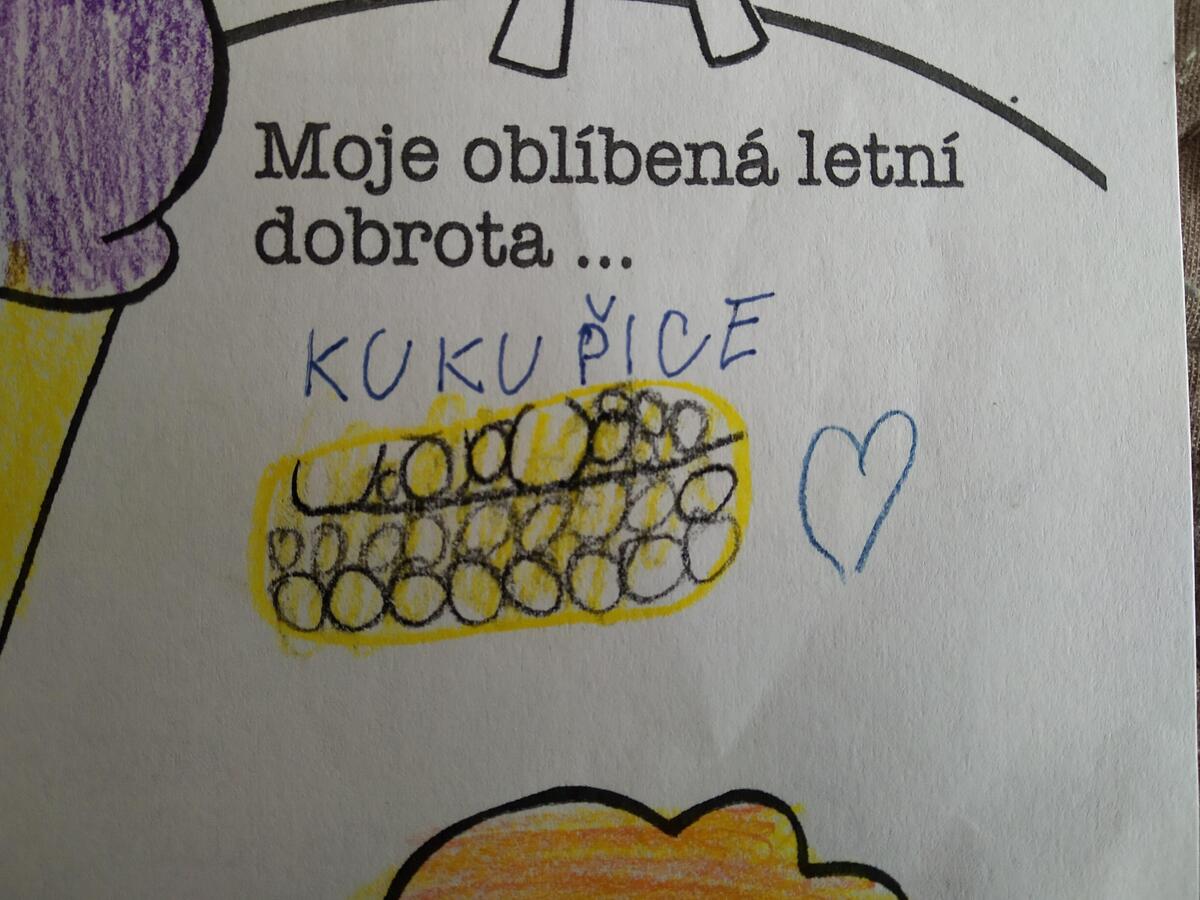 Moje oblíbená letní
dobrota ...
KUKUŘICE